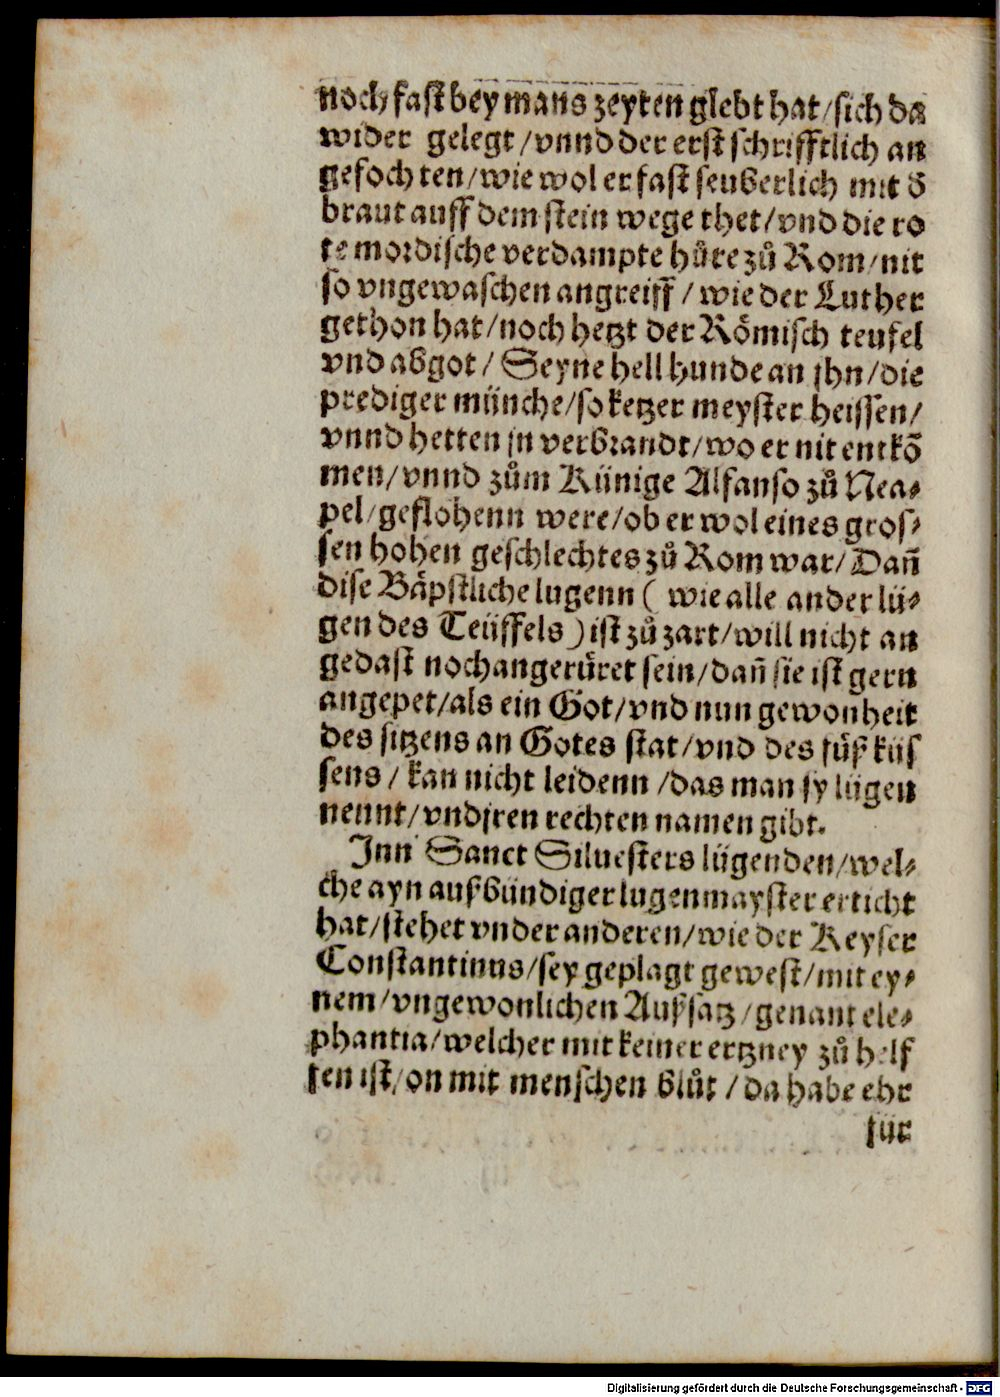 noch fast bey mans zeyten glebt hat/sich da
wider gelegt/vnnd der erst schrifftlich an
gefochten/wie wol er fast seuberlich mit d̄
braut auff dem stein wege thet/vnd die ro
te mordische verdampte hůre zů Rom/nit
so vngewaschen angreiff/wie der Luther
gethon hat/noch hetzt der Rȏmisch teufel
vnd abgot/ Seyne hell hunde an jhn/die
prediger münche/so ketzer meyster heissen/
vnnd hetten jn verbrandt/wo er nit entkō
men/vnnd zům Künige Alfanso zů Nea⸗
pel/geflohenn were/ob er wol eines gros⸗
sen hohen geschlechtes zů Rom war/Dañ
dise Bäpstliche lugenn ( wie alle ander lü⸗
gen des Teüffels ) ist zů zart/will nicht an
gedast noch angerüret sein/dañ sie ist gern
angepet/als ein Got/vnd nun gewonheit
des sitzens an Gotes stat/vnd des füß küs
sens/kan nicht leidenn/das man sy lügen
nennt/vnd jren rechten namen gibt.
Jnn Sanct Siluesters lügenden/wel⸗
che ayn außbündiger lugenmayster erticht
hat/stehet vnder anderen/wie der Keyser
Constantinus/sey geplagt gewest/mit ey⸗
nem/vngewonlichen Außsatz/genant ele⸗
phantia/welcher mit keiner ertzney zů helf
fen ist/on mit menschen blůt/da habe ehr
für
Digitalisierung gefördert durch die Deutsche Forschungsgemeinschaft - DFG